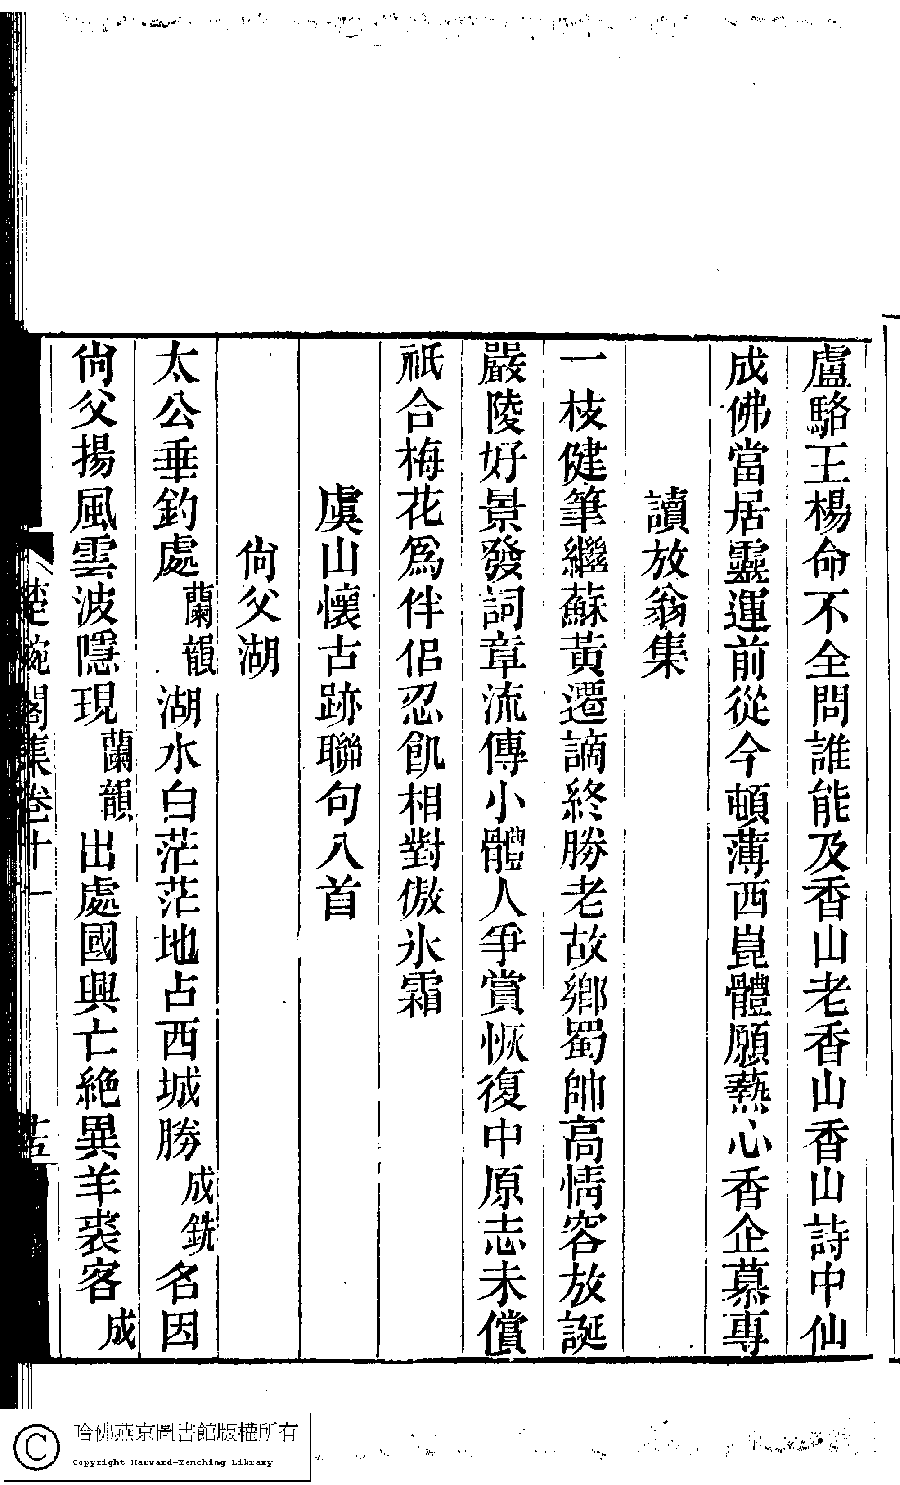 盧駱王楊命不全問誰能及香山老香山香山詩中仙
成佛當居靈運前從今頓薄西崑體願爇心香企慕專
讀放翁集
一枝健筆繼蘇黃遷謫終勝老故鄉蜀帥高情容放誕
嚴陵好景發詞章流傳小體人爭賞恢復中原志未償
祇合梅花爲伴侶忍飢相對傲氷霜
虞山懷古跡聯句八首
尙父湖
太公垂釣處蘭韻湖水白茫茫地占西城勝成銑名因
尙父揚風雲波隱現蘭韻出處國興亡絶異羊裘客成
閣集卷十一
哈佛燕京圖書館版權所有
Copyright Harvard-Yenching Library